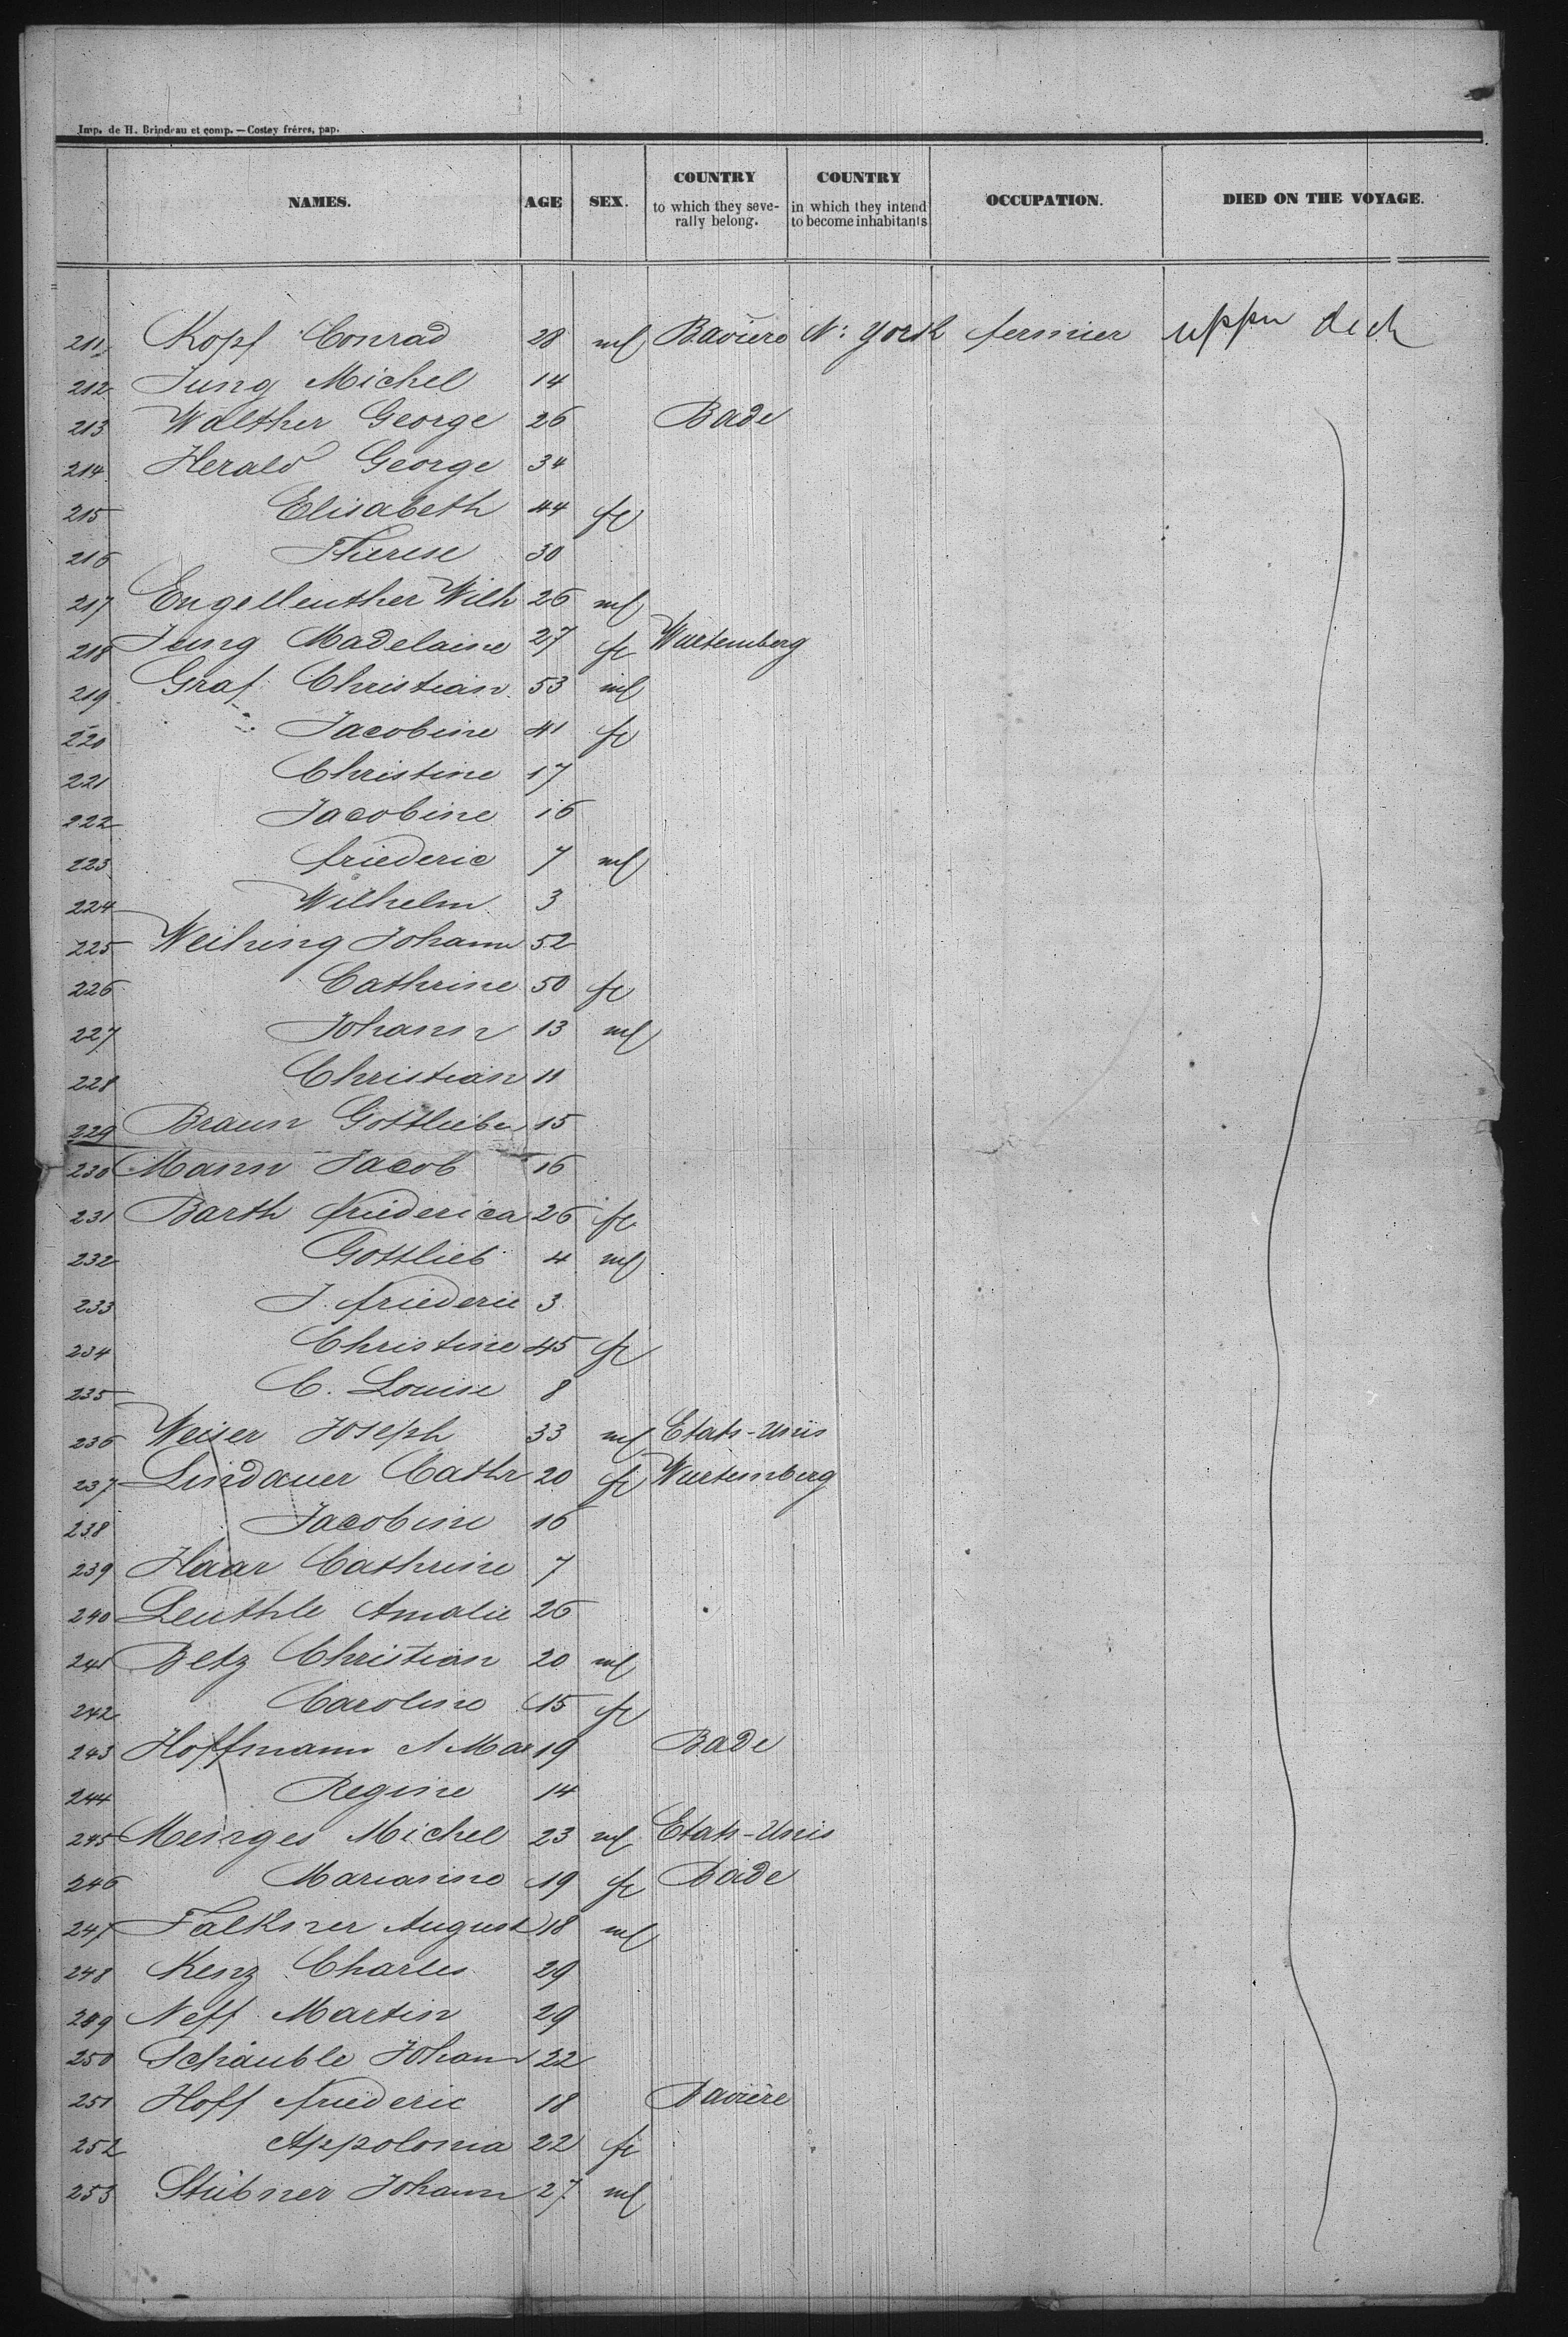 Imp. de H. Brindeau et comp. — Costey fréres, pap.
NAMES. AGE SEX. COUNTRY to which they severally belong. COUNTRY in which they intend to become inhabitants OCCUPATION. DIED ON THE VOYAGE.
211 Kopf Conrad 28 ml Baviere N: York fermier uppr deck
212 Jung Michel 14
213 Walther George 26 Bade
214 Herald George 34
215 Elisabeth 44 fe
216 Therese 30
217 Engelleuther Wilh 26 ml
218 Jung Madelaine 27 fe Wurtemberg
219 Graf Christian 53 ml
220 Jacobine 41 fe
221 Christine 17
222 Jacobine 16
223 friederic 7 ml
224 Wilhelm 3
225 Weihing Johann 52
226 Cathrine 50 fe
227 Johann 13 ml
228 Christian 11
229 Braun Gottlieb 15
230 Mann Jacob 16
231 Barth friederica 26 fe
232 Gottlieb 4 ml
233 J. friederic 3
234 Christine 45 fe
235 C. Louise 8
236 Weiser Joseph 33 ml Etats-Unis
237 Lindauer Cathr 20 fe Wurtemberg
238 Jacobine 16
239 Haar Cathrine 7
240 Leuthle Amalie 26
241 Betz Christian 20 ml
242 Caroline 15 fe
243 Hoffmann A Mar 19 Bade
244 Regine 14
245 Meinges Michel 23 ml Etats-Unis
246 Marianne 19 fe Bade
247 Falkner August 18 ml
248 Kenz Charles 29
249 Neff Martin 29
250 Schäuble Johann 22
251 Hoff friederic 18 Bavière
252 Appolonia 22 fe
253 Stübner Johann 27 ml